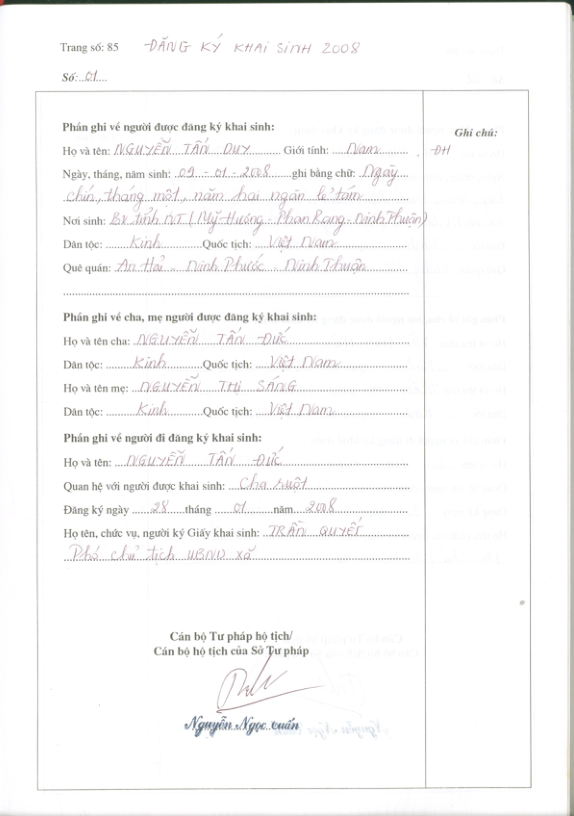 Trang số: 85 ĐĂNG KÝ KHAI SINH 2008
Số: 01
Phần ghi về người được đăng ký khai sinh:
Ghi chú:
Họ và tên: NGUYỄN TẤN DUY Giới tính: Nam
ĐH
Ngày, tháng, năm sinh: 09 - 01 - 2008 ghi bằng chữ: Ngày
chín, tháng một, năm hai ngàn lẻ tám
Nơi sinh: BV tỉnh NT (Mỹ Hương - Phan Rang - Ninh Thuận)
Dân tộc: Kinh Quốc tịch: Việt Nam
Quê quán: An Hải - Ninh Phước - Ninh Thuận
Phần ghi về cha, mẹ người được đăng ký khai sinh:
Họ và tên cha: NGUYỄN TẤN ĐỨC
Dân tộc: Kinh Quốc tịch: Việt Nam
Họ và tên mẹ: NGUYỄN THỊ SÁNG
Dân tộc: Kinh Quốc tịch: Việt Nam
Phần ghi về người đi đăng ký khai sinh:
Họ và tên: NGUYỄN TẤN ĐỨC
Quan hệ với người được khai sinh: Cha ruột
Đăng ký ngày 28 tháng 01 năm 2008
Họ tên, chức vụ, người ký Giấy khai sinh: TRẦN QUYẾT
Phó chủ tịch UBND xã
Cán bộ Tư pháp hộ tịch/
Cán bộ hộ tịch của Sở Tư pháp
Nguyễn Ngọc Tuấn